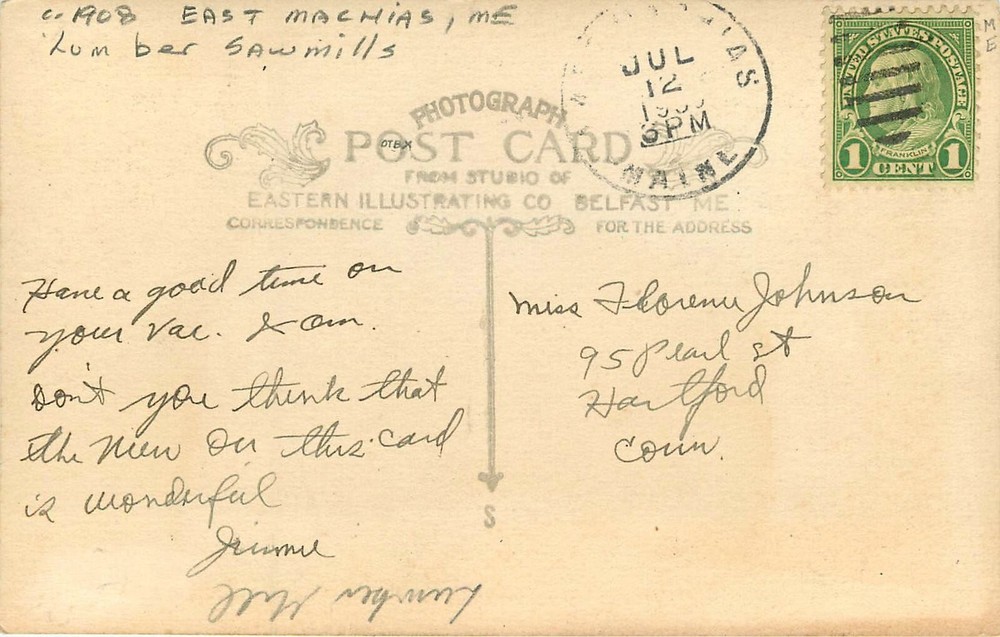 c. 1908 EAST MACHIAS, ME
Lumber Sawmills
ME
JUL
12
6 PM
MAINE
UNITED STATES POSTAGE
FRANKLIN
1 CENT 1
PHOTOGRAPH
POST CARD
OTBX
FROM STUDIO OF
EASTERN ILLUSTRATING CO BELFAST ME
CORRESPONDENCE FOR THE ADDRESS
Have a good time on
your vac. I am.
Don't you think that
the View on this card
is wonderful
Jimmie
Lumber Mill
Miss Florence Johnson
95 Pearl st
Hartford
Conn.
S